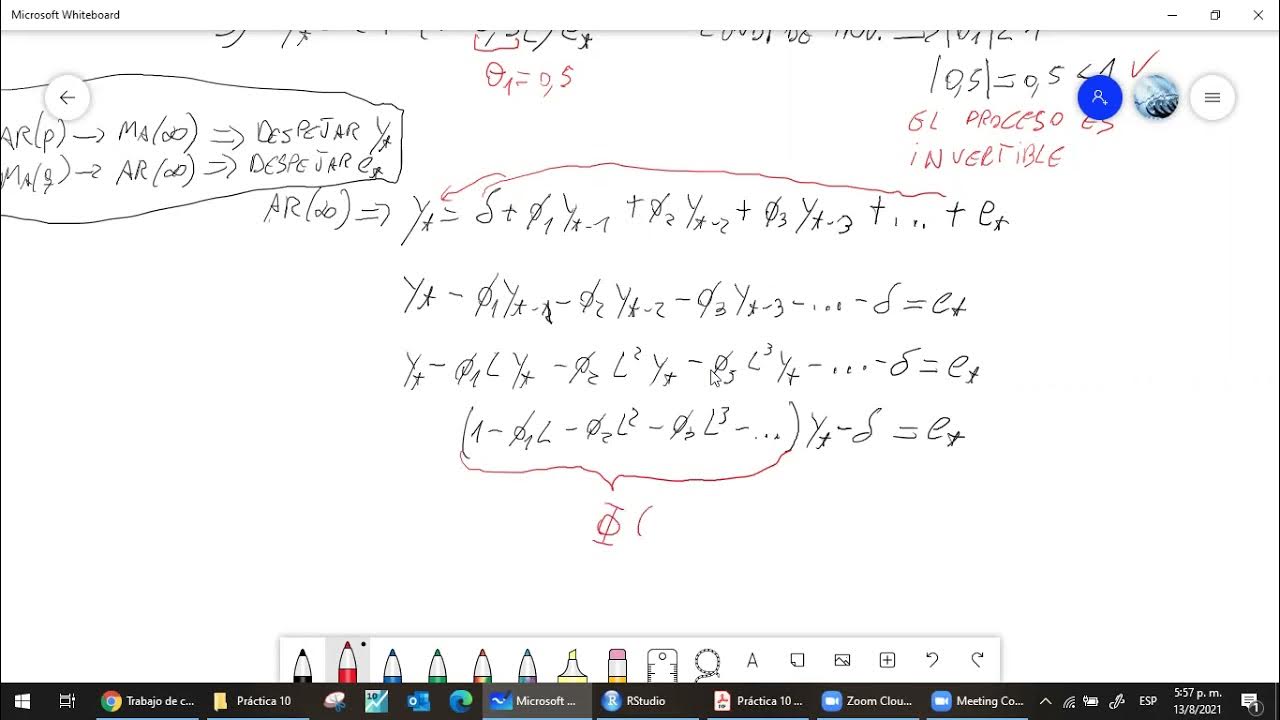 Microsoft Whiteboard
θ₁=0,5
|0,5|=0,5 <1 ✓
EL PROCESO ES
INVERTIBLE
AR(p) → MA(∞) ⇒ DESPEJAR Yt
MA(q) → AR(∞) ⇒ DESPEJAR et
AR(∞) ⇒ Yt = δ + ϕ₁Yt-1 + ϕ₂Yt-2 + ϕ₃Yt-3 + ... + et
Yt - ϕ₁Yt-1 - ϕ₂Yt-2 - ϕ₃Yt-3 - ... - δ = et
Yt - ϕ₁LYt - ϕ₂L²Yt - ϕ₃L³Yt - ... - δ = et
(1 - ϕ₁L - ϕ₂L² - ϕ₃L³ - ...)Yt - δ = et
Φ(
A
Trabajo de c...
Práctica 10
10
Microsoft ...
RStudio
Práctica 10 ...
Zoom Clou...
Meeting Co...
ESP
5:57 p. m.
13/8/2021
1